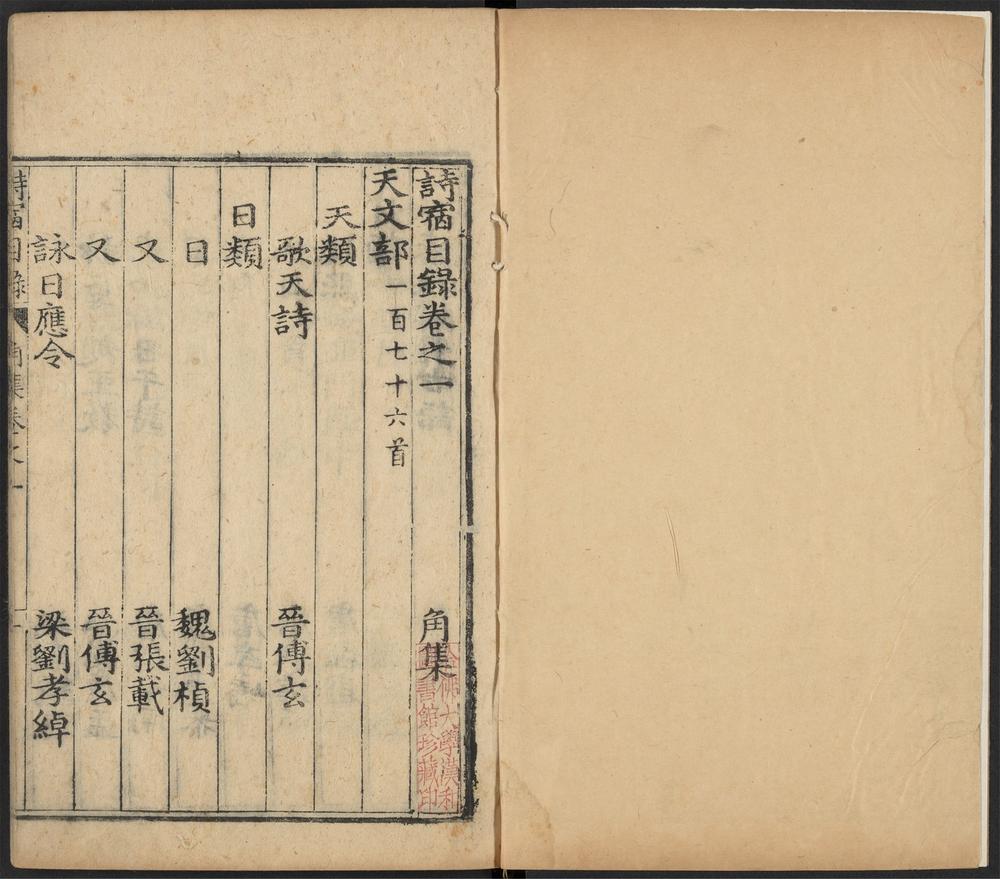 詩宿目錄卷之一 角集
天文部 一百七十六首
天類
歌天詩 晉傅玄
日類
日 魏劉楨
又 晉張載
又 晉傅玄
詠日應令 梁劉孝綽
詩宿目錄 角集卷之一 一
哈佛大學漢和
圖書館珍藏印